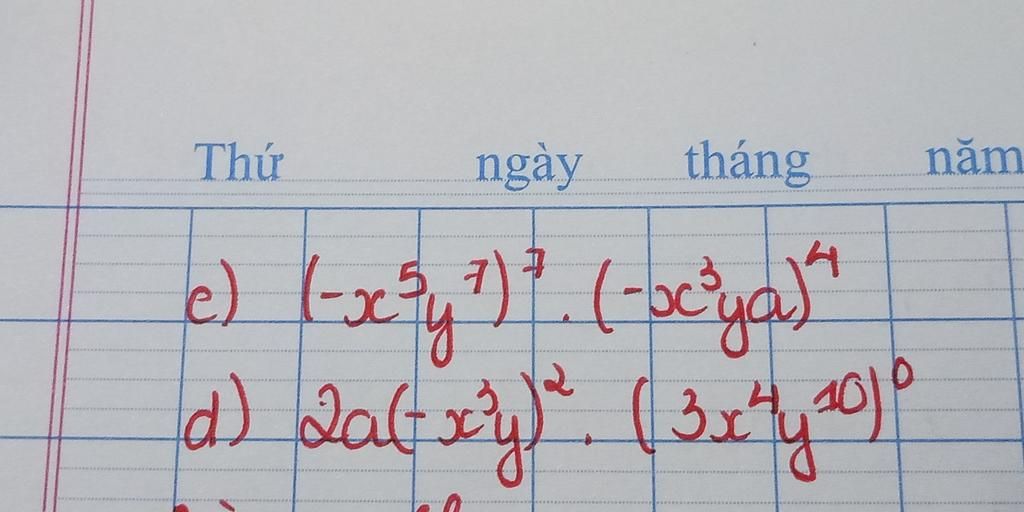 Thứ ngày tháng năm
e) (-x⁵y⁷)⁷ . (-x³ya)⁴
d) 2a(-x³y)² . (3x⁴y¹⁰)⁰